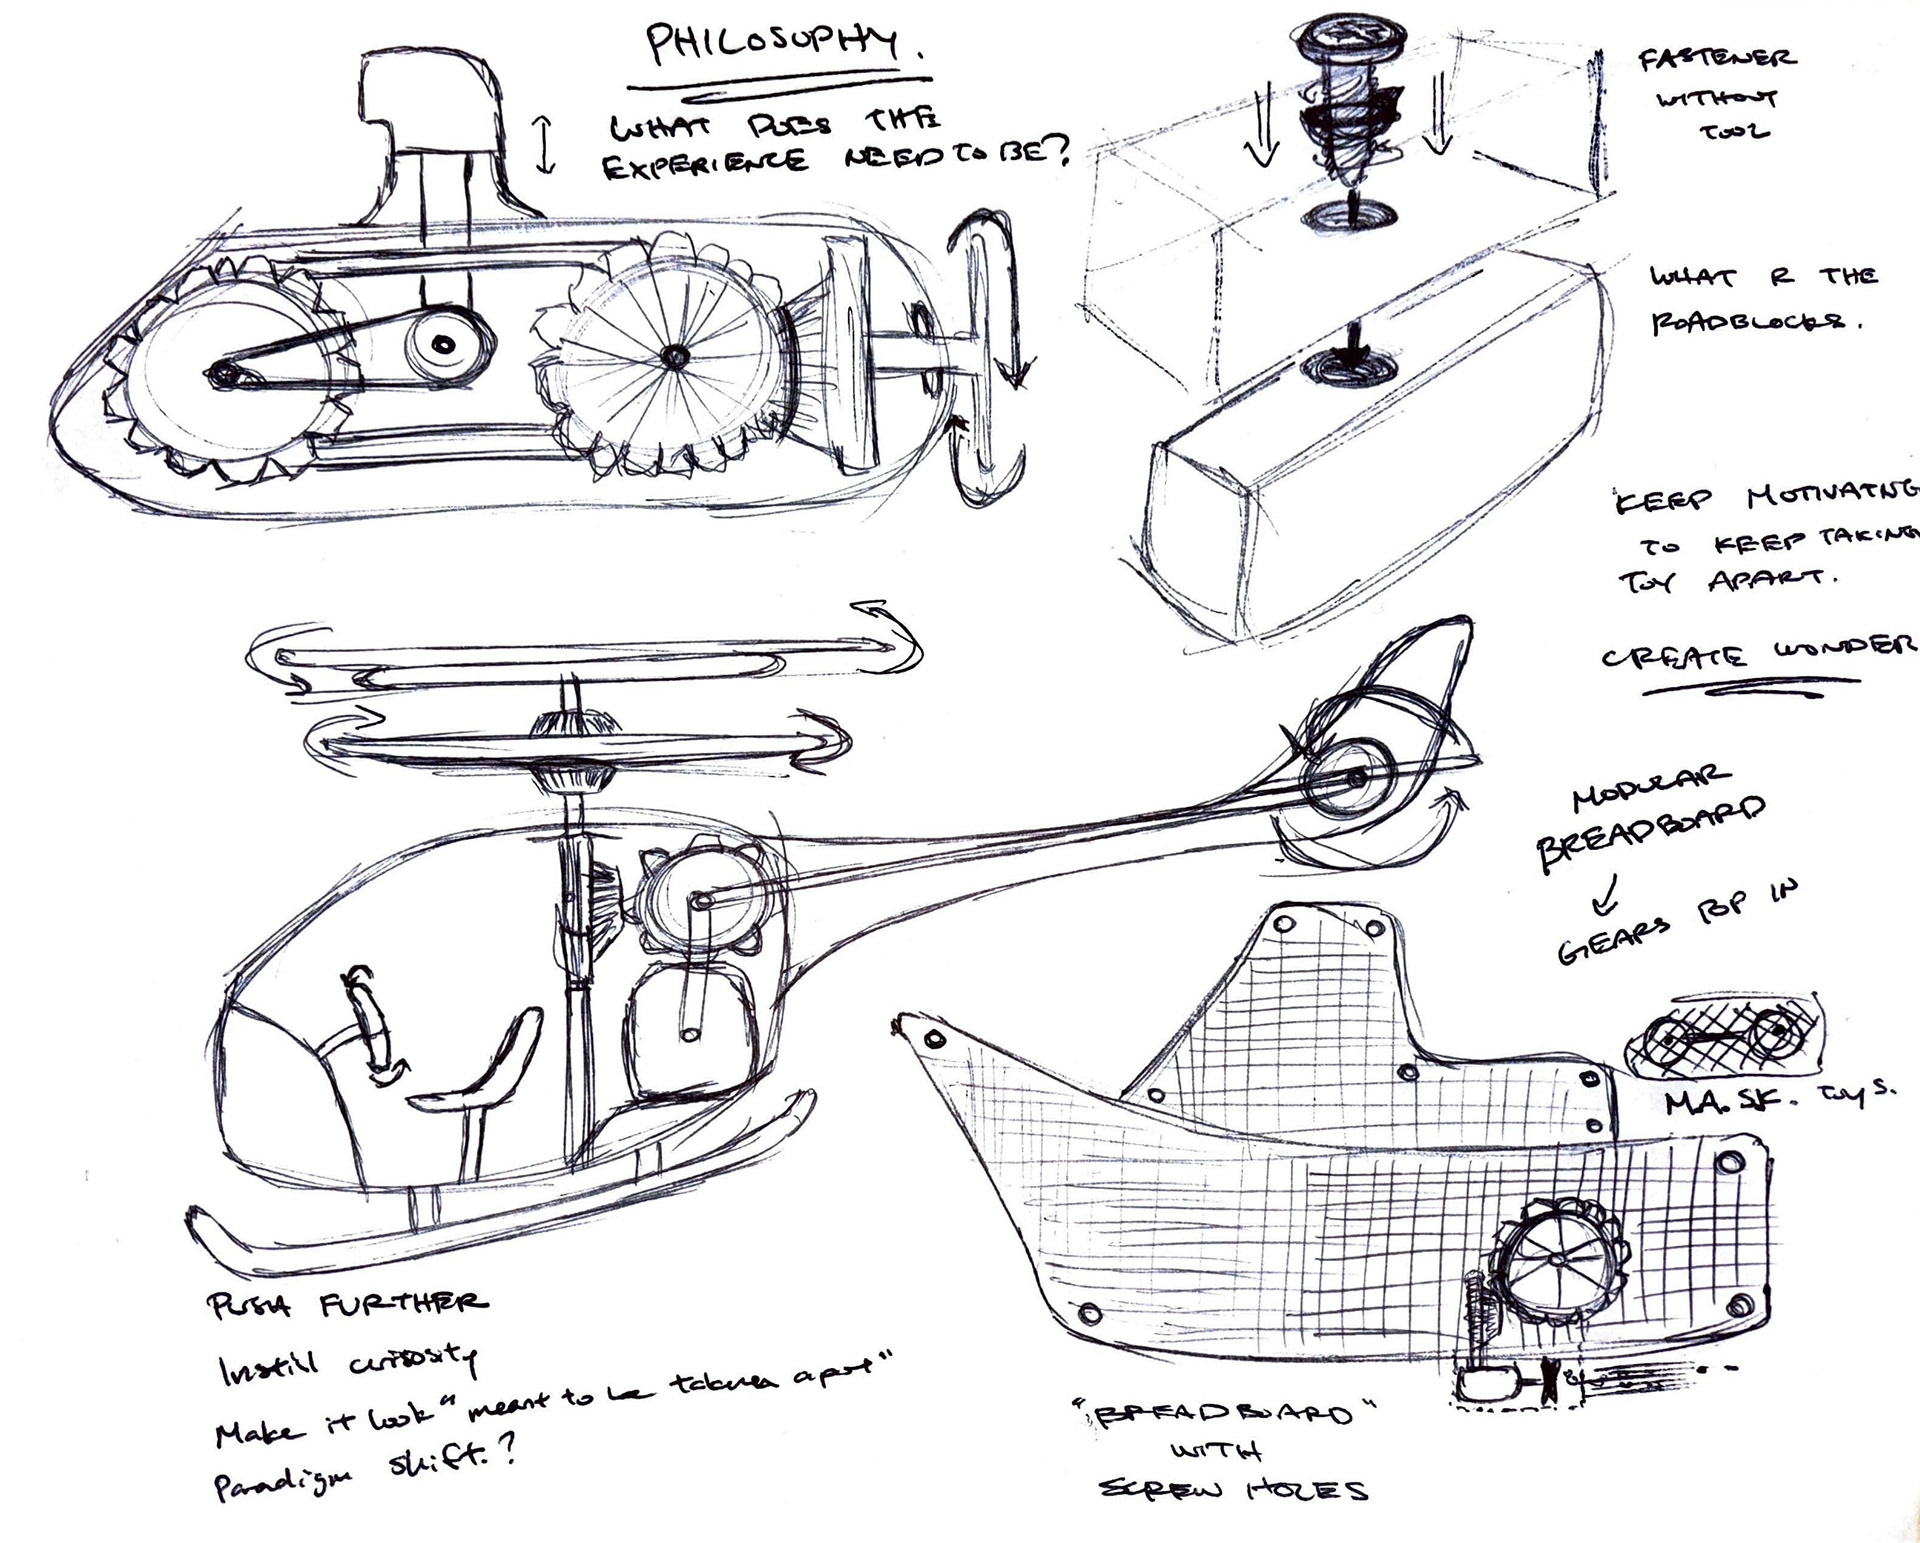 PHILOSOPHY.
WHAT DOES THE
EXPERIENCE NEED TO BE?
FASTENER
WITHOUT
TOOL
WHAT R THE
ROADBLOCKS.
KEEP MOTIVATNG
TO KEEP TAKING
TOY APART.
CREATE WONDER
MODULAR
BREADBOARD
GEARS POP IN
M.A.SK. TOYS.
PUSH FURTHER
Instill curiosity
Make it look "meant to be taken apart"
Paradigm shift.?
"BREADBOARD"
WITH
SCREW HOLES